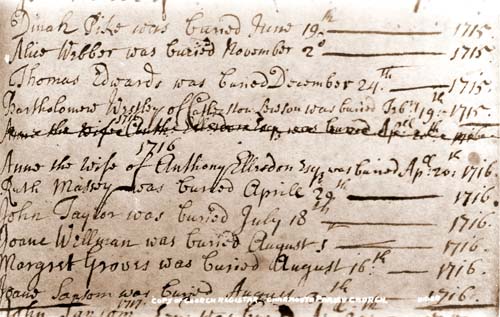 Dinah Pike was buried June 19th 1715.
Alice Webber was buried November 2d 1715.
Thomas Edwards was buried December 24th 1715.
Bartholomew of was buried Feb 19th 1715
Anne the wife was buried
1716
Anne the wife of Anthony Ellesdon Esqr was buried Apll 20th 1716.
Ruth Massey was buried Aprill 29th 1716.
John Taylor was buried July 18th 1716.
Joane Wellman was buried August 1 1716.
Margret Groves was buried August 16th 1716.
Joane Sansom was buried August 1716.
1717
John Sansom
COPY OF CHURCH REGISTAR CHARMOUTH PARISH CHURCH.